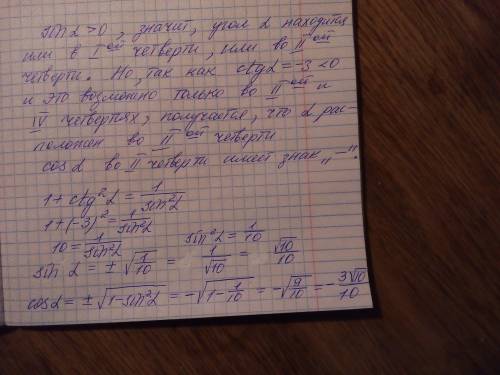 sin α > 0, значит, угол α находится
или в I ой четверти, или во II ой
четверти. Но, так как ctg α = -3 < 0
и это возможно только во II ой и
IV четвертях, получается, что α рас-
положен во II ой четверти
cos α во II четверти имеет знак „–".
1 + ctg²α = 1/sin²α
1 + (-3)² = 1/sin²α
10 = 1/sin²α sin²α = 1/10
sin α = ± √(1/10) = 1/√10 = √10/10
cos α = ± √(1 - sin²α) = -√(1 - 1/10) = -√(9/10) = -3√10/10